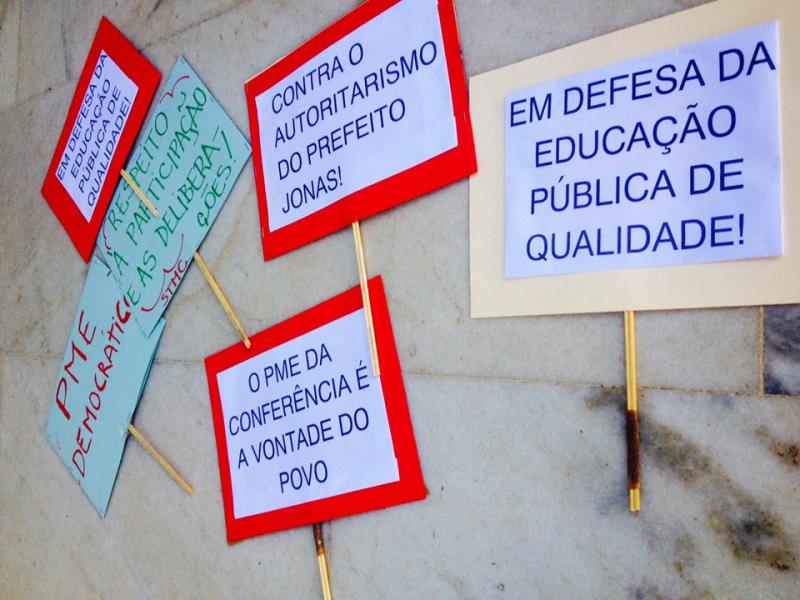 EM DEFESA DA
EDUCAÇÃO
PÚBLICA DE
QUALIDADE!
RESPEITO
À PARTICIPAÇÃO
E AS DELIBERA-
ÇÕES!
STMC
PME
DEMOCRÁTICO
CONTRA O
AUTORITARISMO
DO PREFEITO
JONAS!
O PME DA
CONFERÊNCIA É
A VONTADE DO
POVO
EM DEFESA DA
EDUCAÇÃO
PÚBLICA DE
QUALIDADE!